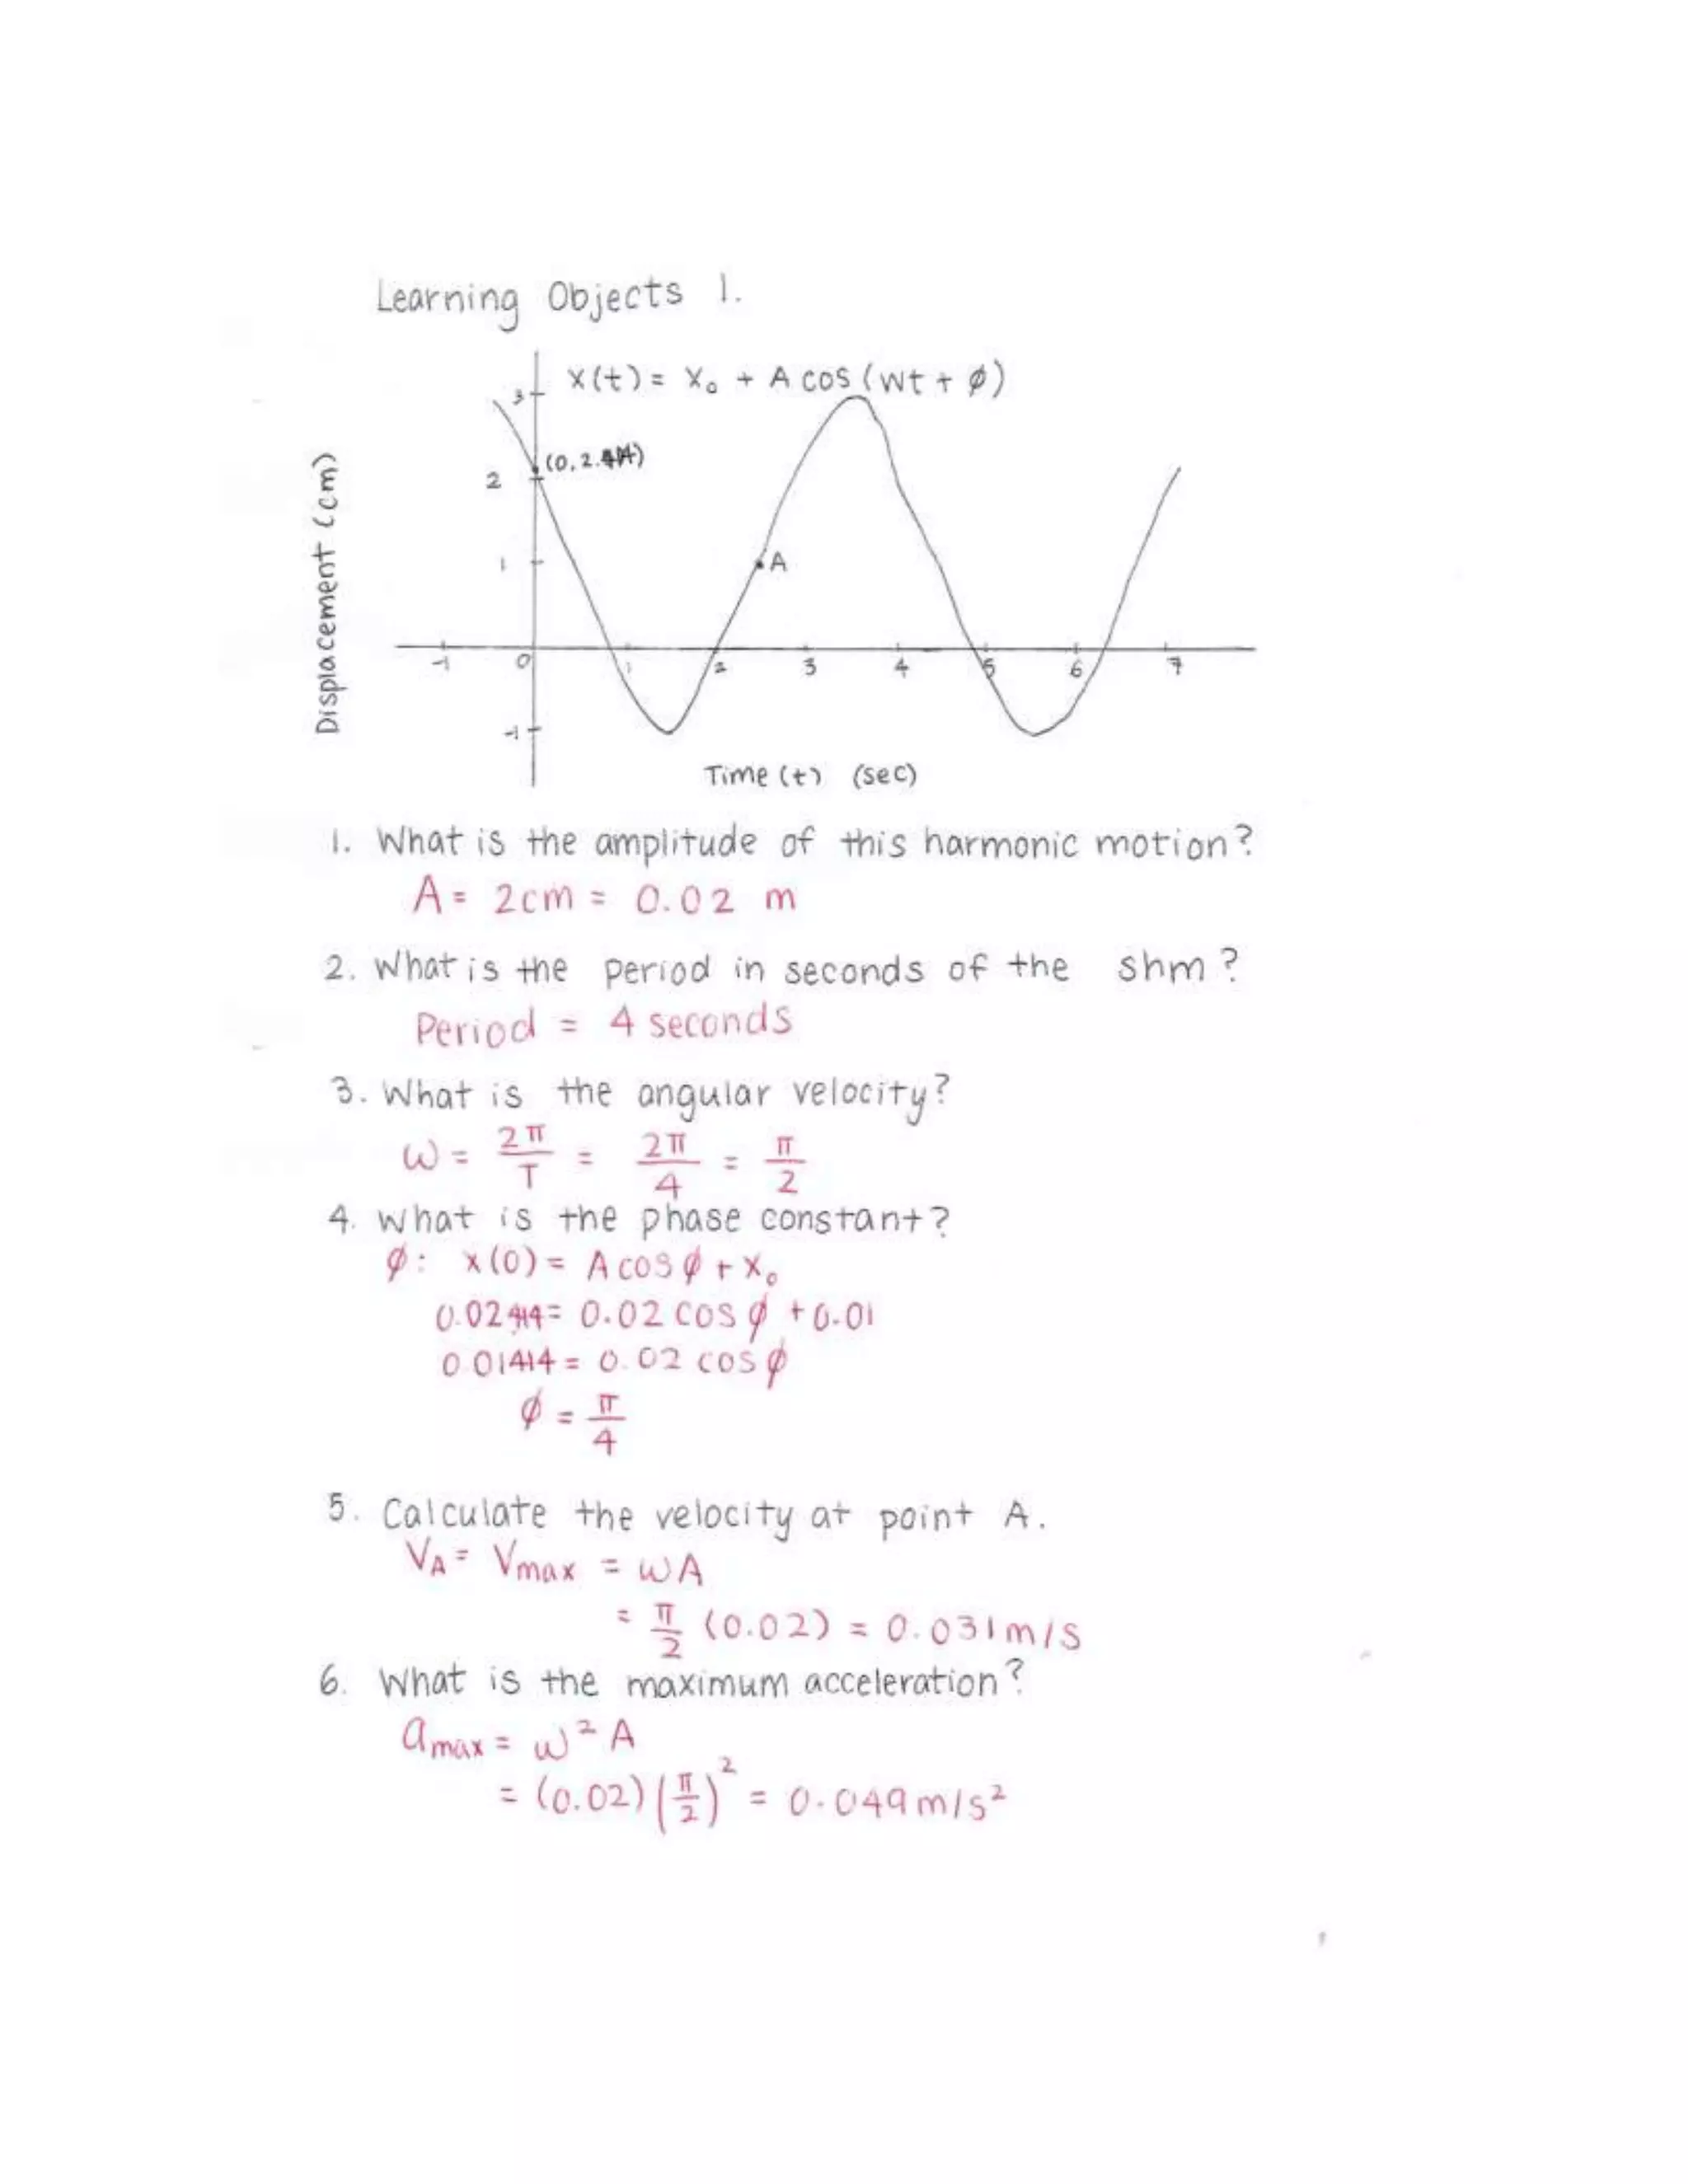 Learning Objects 1.
x(t) = X₀ + A cos (wt + φ)
3
(0, 2.414)
2
1
A
Displacement (cm)
-1 0 1 2 3 4 5 6 7
-1
Time (t) (sec)
1. What is the amplitude of this harmonic motion?
A = 2cm = 0.02 m
2. What is the period in seconds of the shm?
Period = 4 seconds
3. What is the angular velocity?
ω = 2π/T = 2π/4 = π/2
4. What is the phase constant?
φ: x(0) = A cos φ + X₀
0.02414 = 0.02 cos φ + 0.01
0.01414 = 0.02 cos φ
φ = π/4
5. Calculate the velocity at point A.
V_A = V_max = ωA
= π/2 (0.02) = 0.031 m/s
6. What is the maximum acceleration?
a_max = ω² A
= (0.02)(π/2)² = 0.049 m/s²